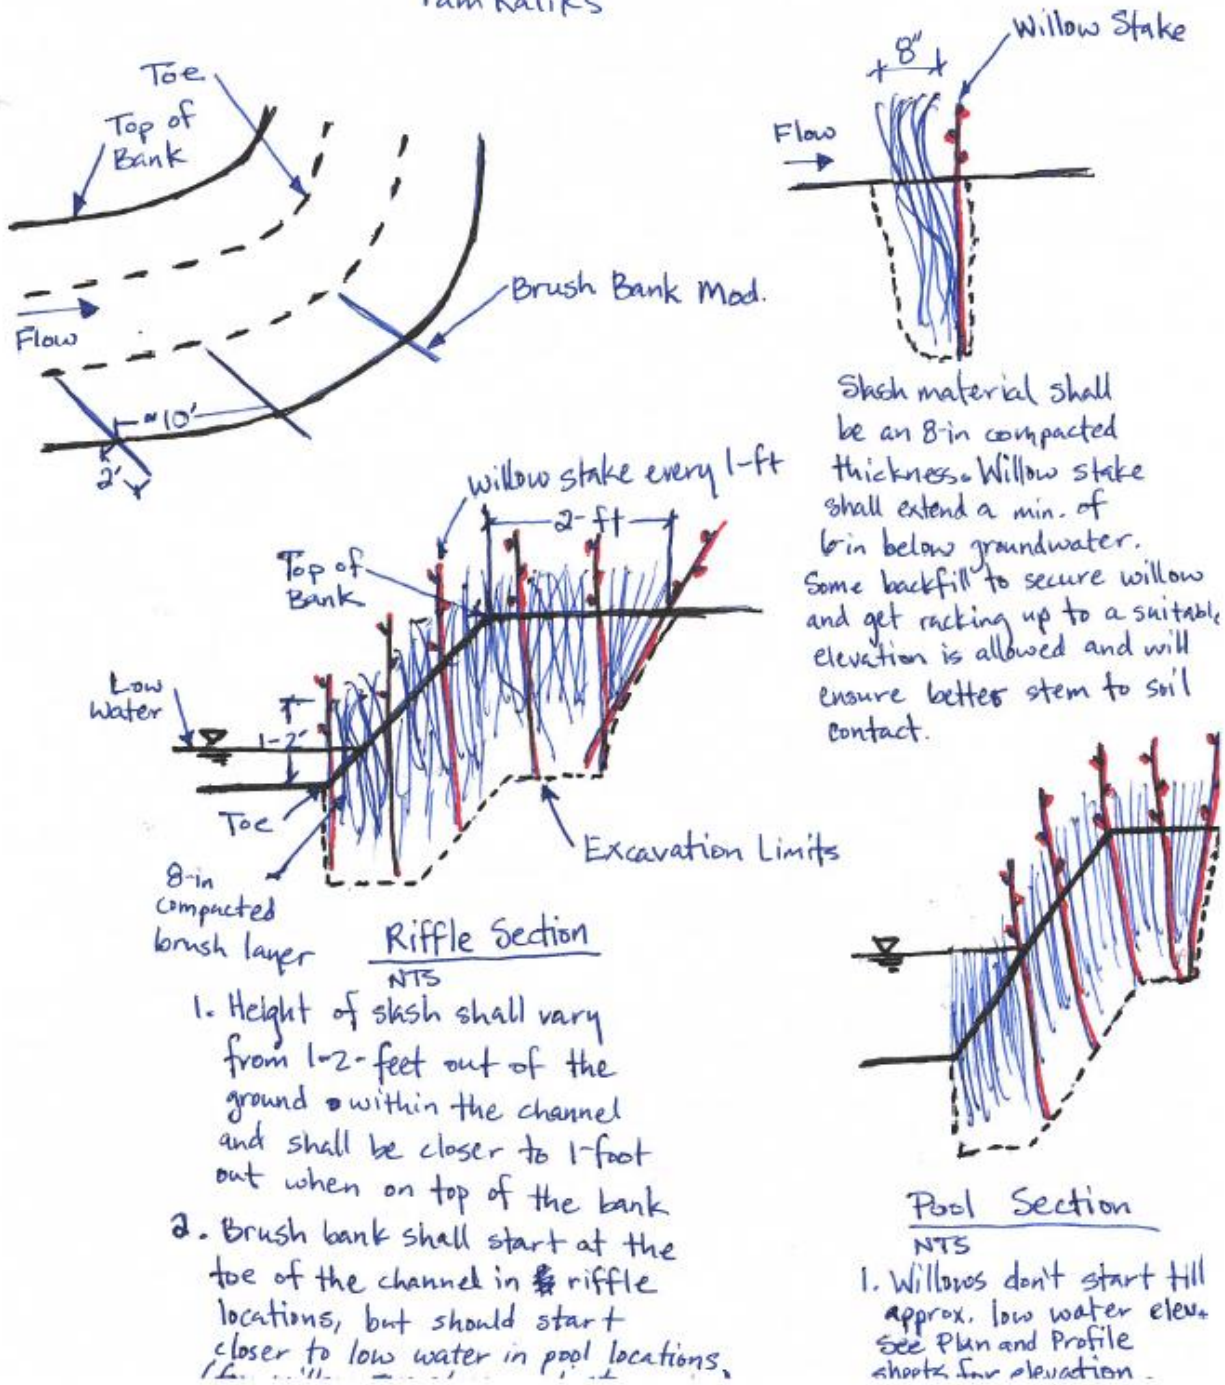 Toe
Top of
Bank
Flow
≈10'
2'
Brush Bank Mod.
8"
Willow Stake
Flow
Slash material shall
be an 8-in compacted
thickness. Willow stake
shall extend a min. of
6-in below groundwater.
Some backfill to secure willow
and get racking up to a suitable
elevation is allowed and will
ensure better stem to soil
contact.
willow stake every 1-ft
2-ft
Top of
Bank
Low
Water
1-2'
Toe
8-in
compacted
brush layer
Excavation Limits
Riffle Section
NTS
1. Height of slash shall vary
from 1-2-feet out of the
ground within the channel
and shall be closer to 1-foot
out when on top of the bank
2. Brush bank shall start at the
toe of the channel in riffle
locations, but should start
closer to low water in pool locations.
Pool Section
NTS
1. Willows don't start till
approx. low water elev.
See Plan and Profile
sheets for elevation.